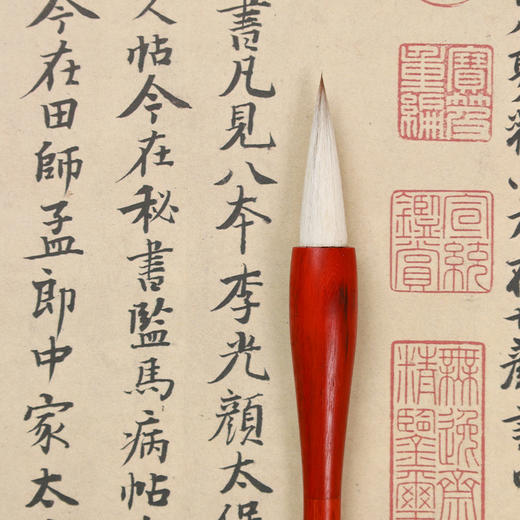 寶笈
重編
宣統
鑑賞
無逸齋
精鑒璽
書凡見八本李光顔太保
帖今在秘書監馬病帖
今在田師孟郎中家太